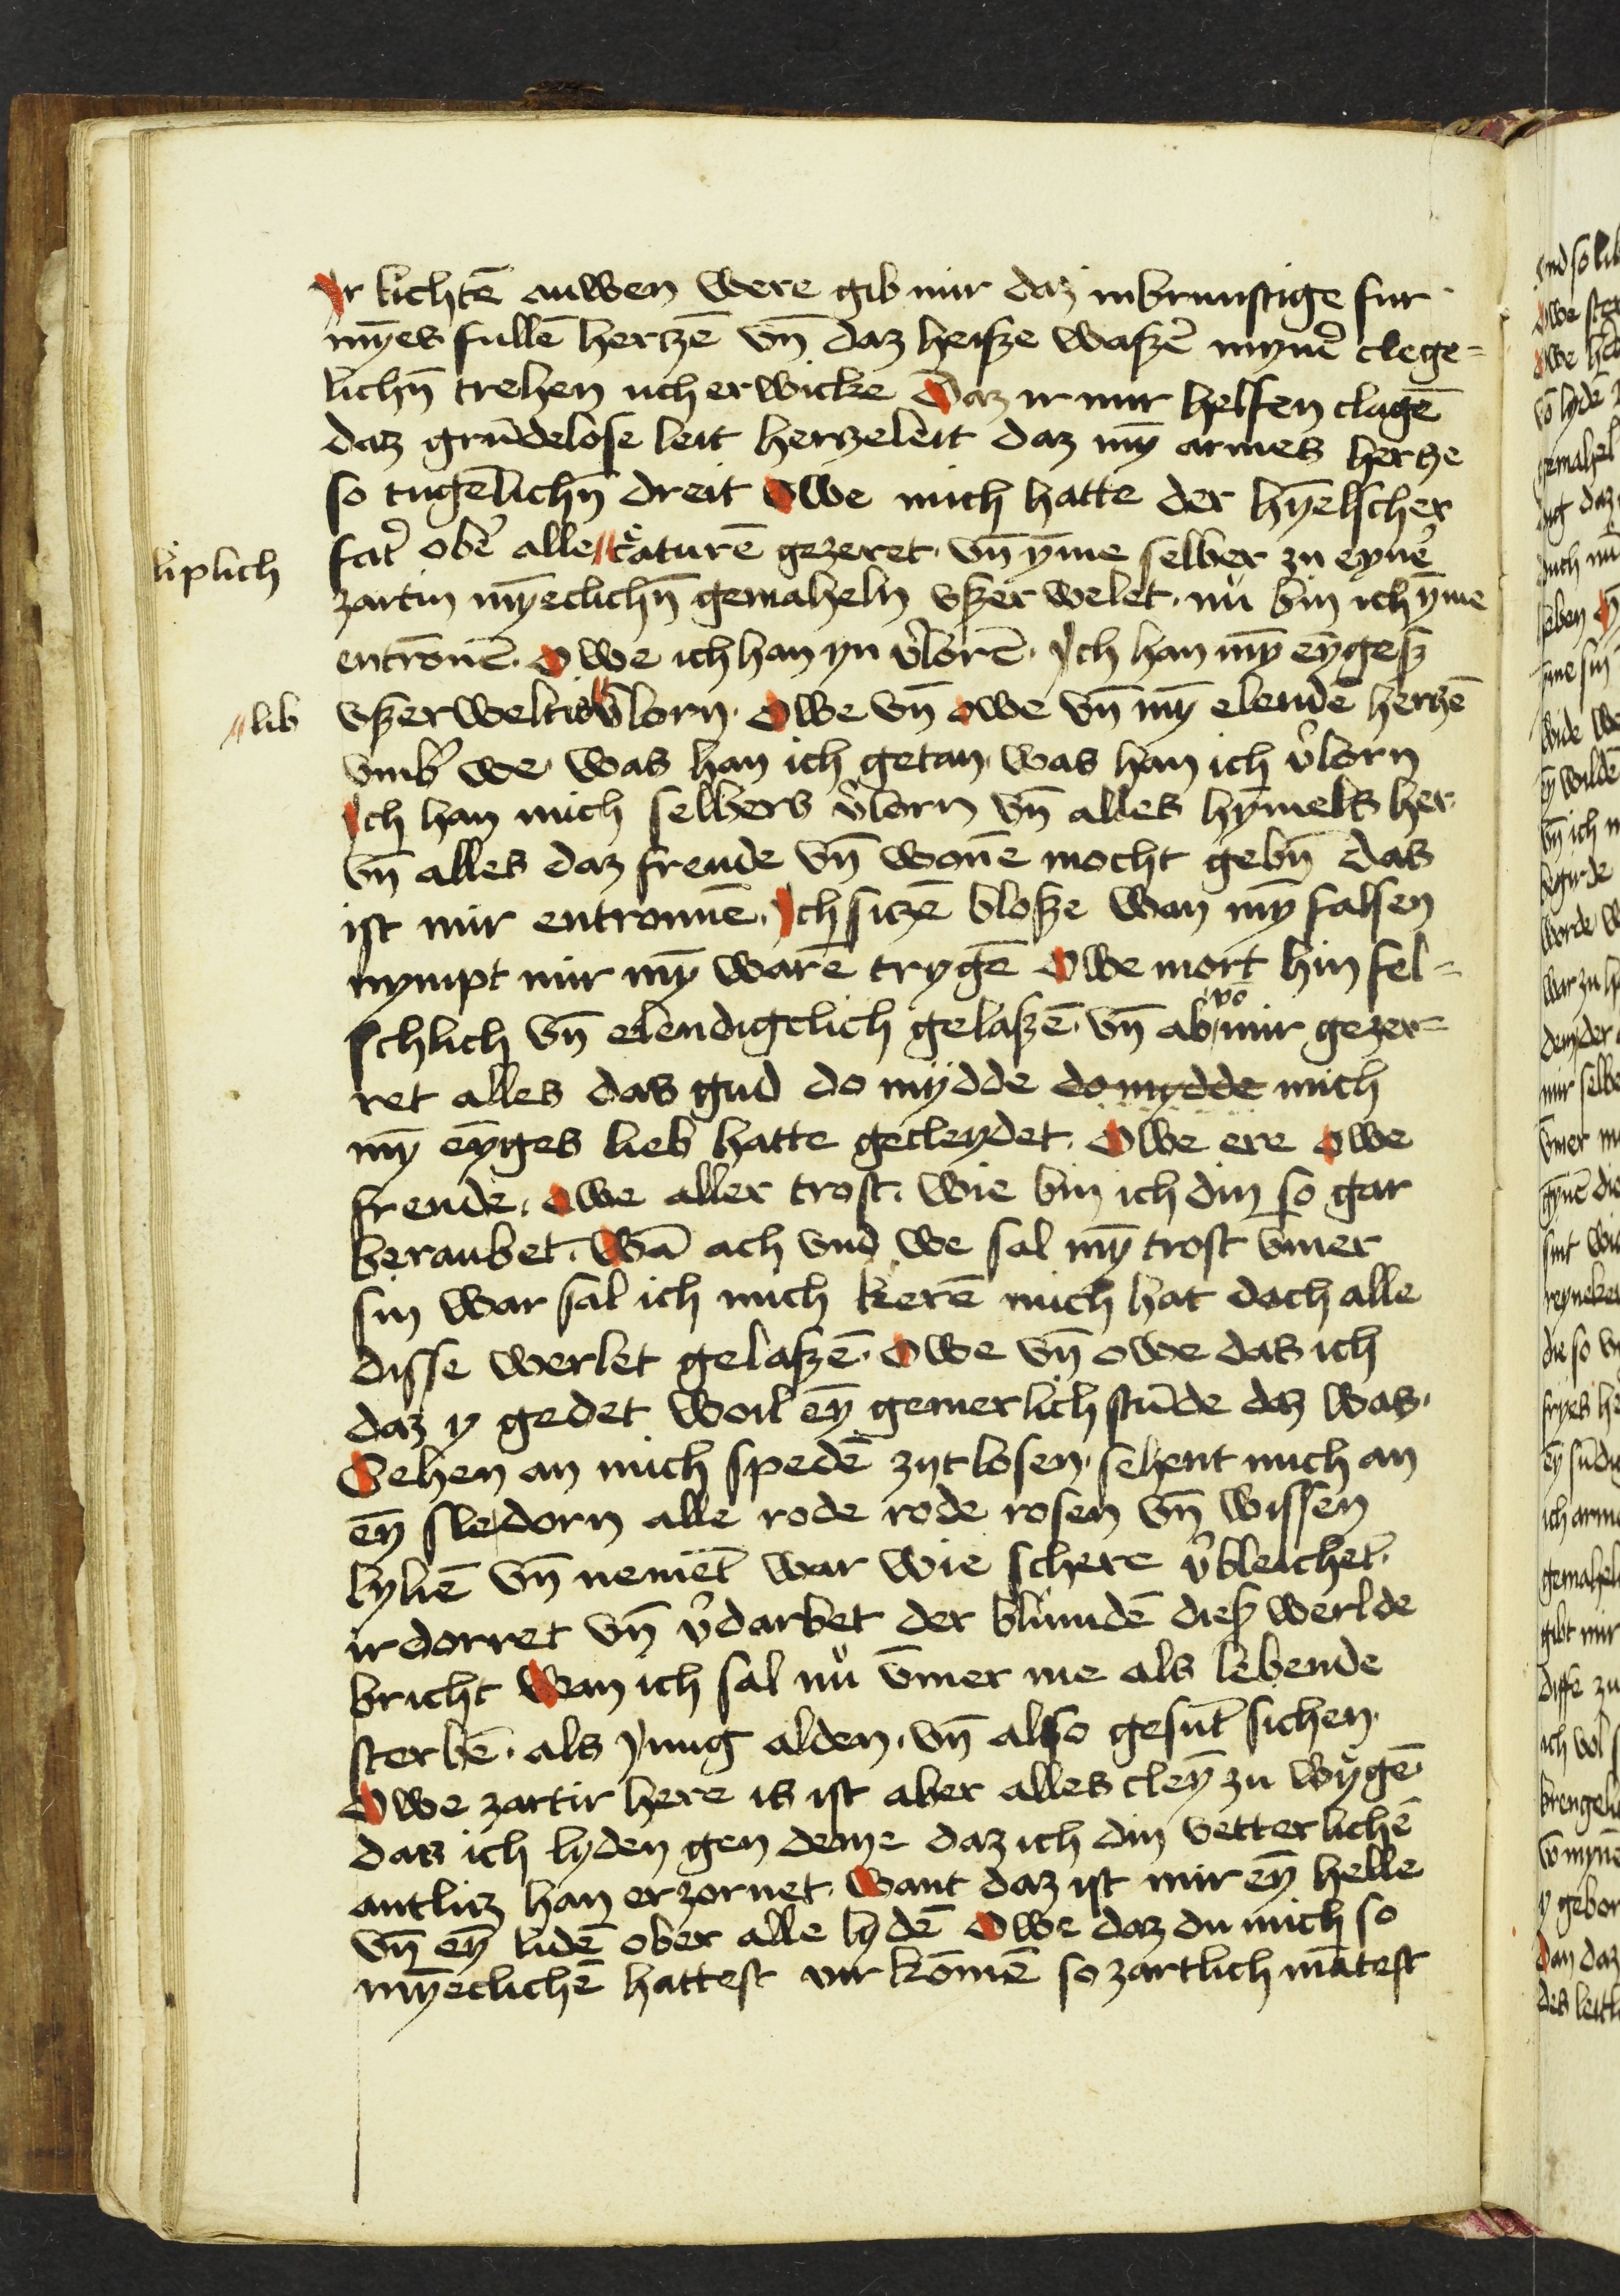 Ir lichtē auwen were gib mir daz inbrunstige fur
mȳes fullē herczē vn̄ daz heisze waszẽ mynẽ clege=
lichn̄ trehen uch erwicke Daz ir mir helfen clagē
daz grūdelose leit herzeleit daz mȳ armes hercze
so tugēlichn̄ dreit Owe mich hatte der hȳelscher
fat̾ ob̾ alle creaturē gezeret vn̄ ȳme selber zu eynẽ
liplich
zartin mȳeclichn̄ gemaheln vszer welet nu bin ich ȳme
entrōnē. Owe ich han yn v̾lorē. Ich han mȳ eȳgesz
lib
vszerweltis v̾lorn. Owe vn̄ owe vn̄ mȳ elende herczē
vmb̾ we was han ich getan was han ich v̾lorn
Ich han mich selbers v̾lorn vn̄ alles hȳmels her
vn̄ alles daz freude vn̄ wonē mocht gebn̄ das
ist mir entronnē. Ich sitzē blosze wan mȳ falsen
nympt mir mȳ warē trygē Owe mort hin fel=
schlich vn̄ elendigclich gelaszē vn̄ ab vō mir gezer=
ret alles das gud do mydde do mydde mich
mȳ eȳges lieb hatte gecleydet. Owe ere owe
freude. owe aller trost. wie bin ich din so gar
beraubet. Wā ach vnd we sal mȳ trost vmer
sin war sal ich mich kerē mich hat doch alle
disse werlet gelaszē. Owe vn̄ owe das ich
daz y gedet woil eȳ gemerlich stūde daz was.
Sehen an mich spedē zytlosen. sehent mich an
eȳ sledorn alle rode rode rosen vn̄ wissen
lyliē vn̄ nemēt war wie schere v̾bleichet.
irdorret vn̄ v̾darbet der blumdē diesz werlde
bricht Wan ich sal nu v̄mer me als lebende
sterbē. als yung alden. vn̄ also gesūt sichen.
Owe zartir here is ist aber alles cleȳ zu wygē
das ich lyden gen deme daz ich din vetterlichē
antlitz han erzornet. want daz ist mir eȳ helle
vn̄ eȳ lidē ober alle lydē Owe daz du mich so
mȳeclichē hattest vur kōmē so zartlich mātest